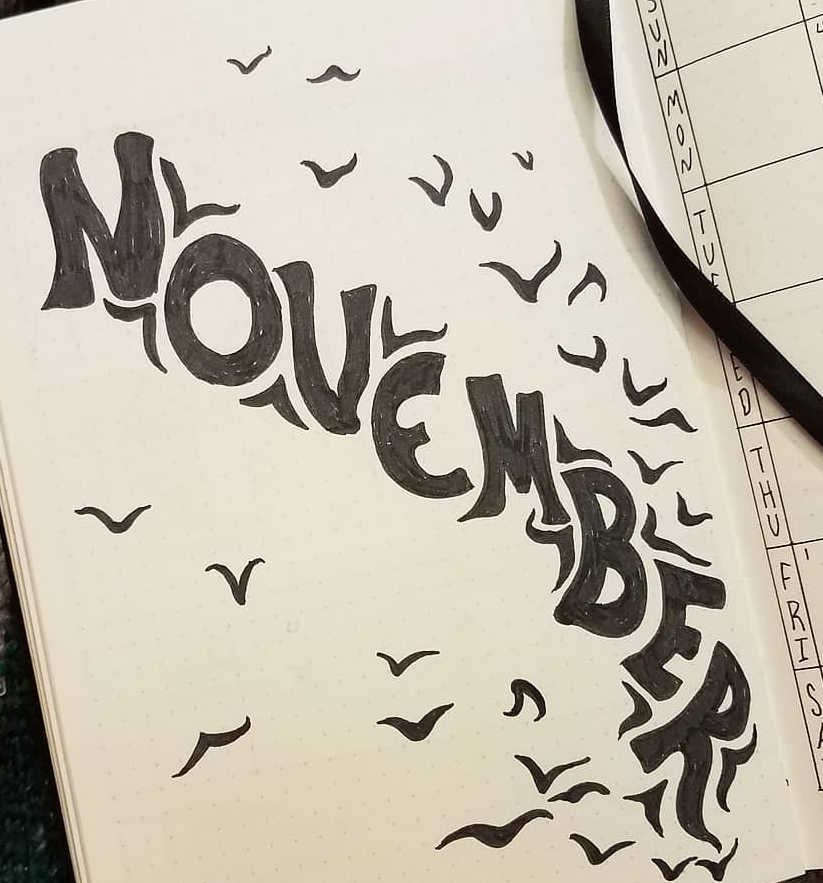 NOVEMBER
SUN
MON
TUE
ED
THU
FRI
SA